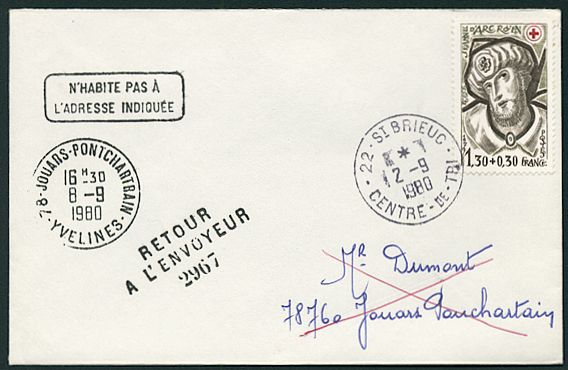 N'HABITE PAS À
L'ADRESSE INDIQUÉE
78-JOUARS-PONTCHARTRAIN
16 H30
8 -9
1980
-YVELINES-
RETOUR
A L'ENVOYEUR
2967
22 - ST BRIEUC
*
2 -9
1980
CENTRE-DE-TRI
1.30+0,30 FRANCE
Mr Dumont
78760 Jouars Ponchartain